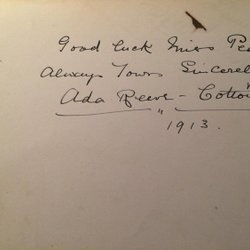 Good luck Miss Pea
Always Yours Sincerel
Ada Reeve - Cotto
"      "
1913.